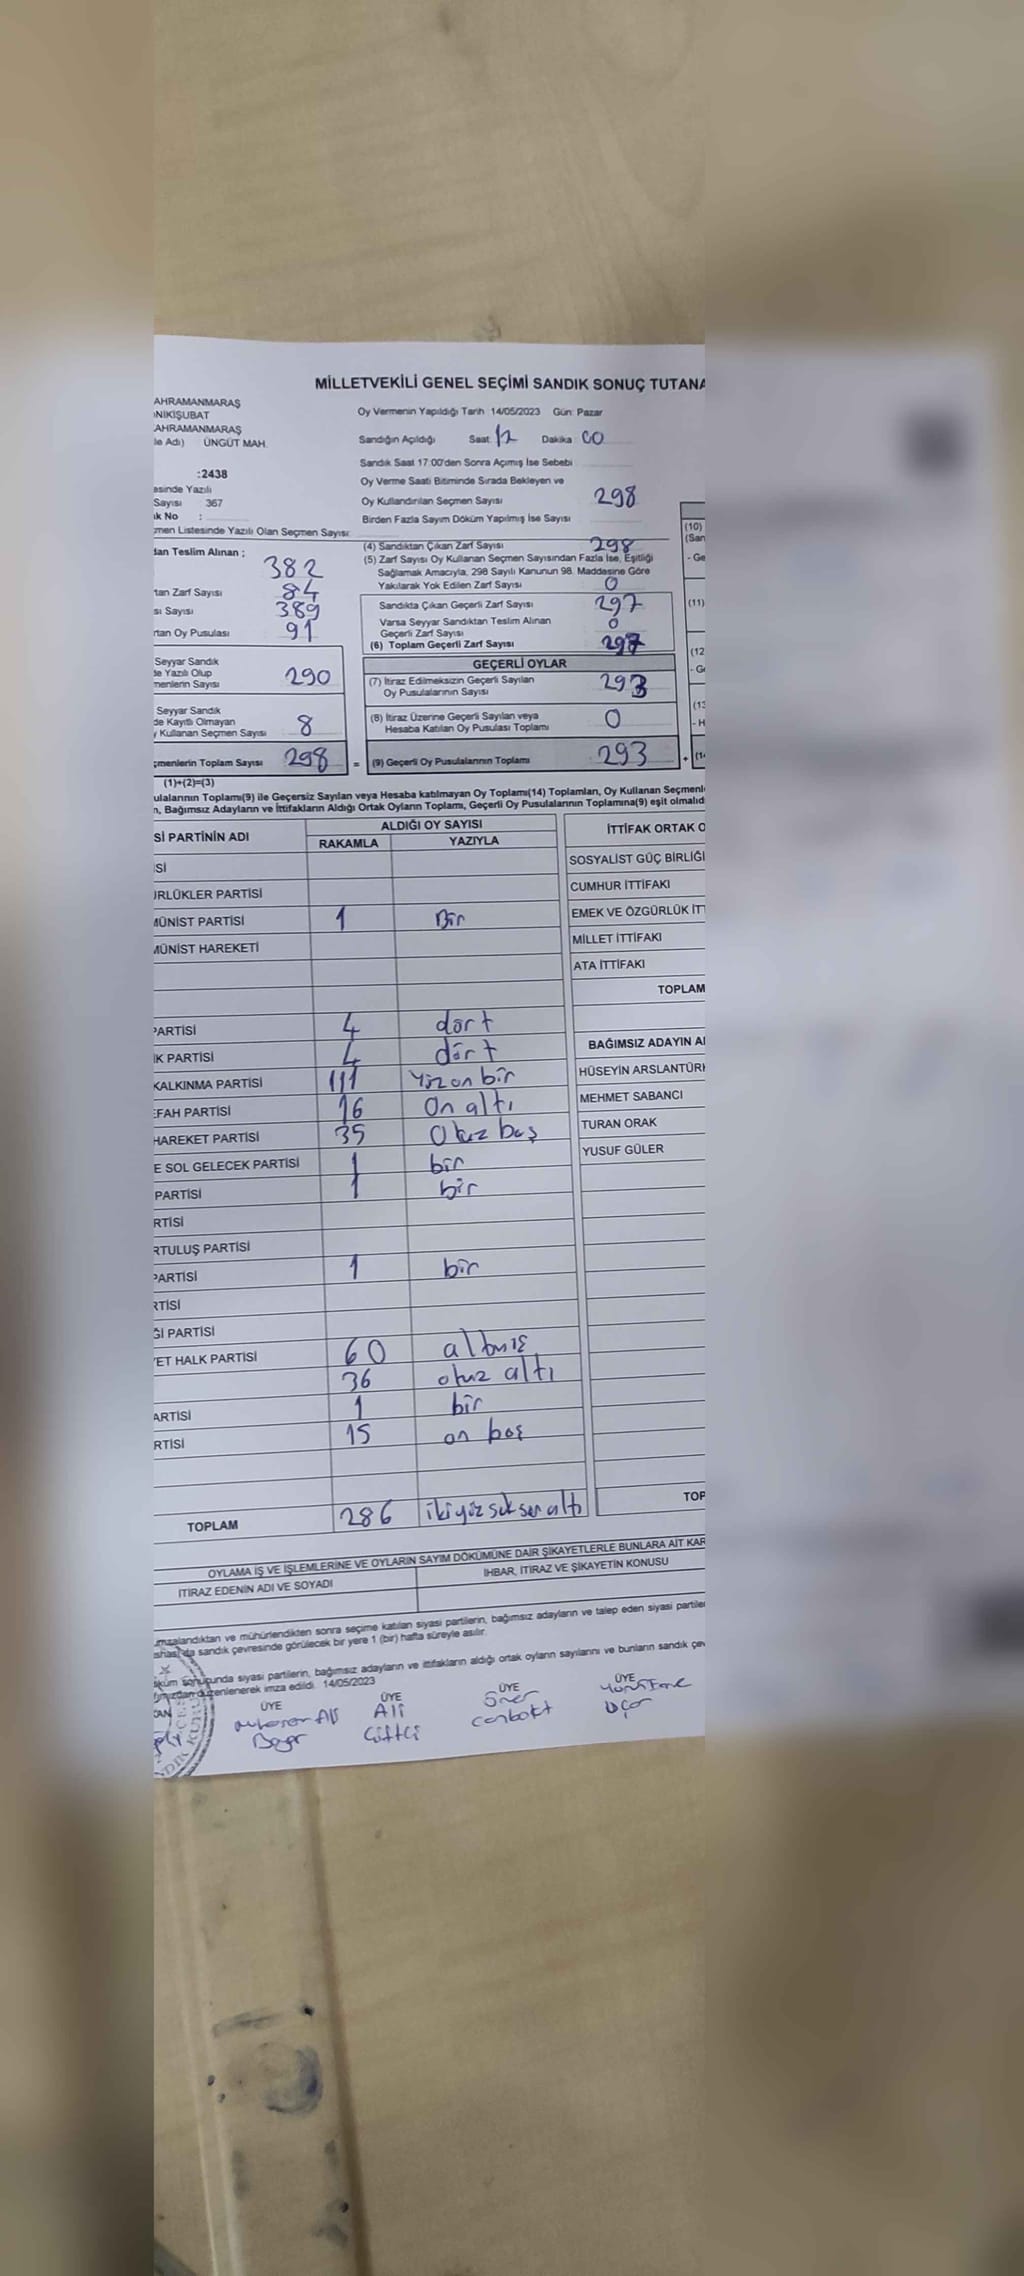 MİLLETVEKİLİ GENEL SEÇİMİ SANDIK SONUÇ TUTANA
AHRAMANMARAŞ
NİKİŞUBAT
AHRAMANMARAŞ
le Adı) ÜNGÜT MAH.
:2438
esinde Yazılı
Sayısı 367
ık No :
men Listesinde Yazılı Olan Seçmen Sayısı
dan Teslim Alınan ;
382
tan Zarf Sayısı 84
sı Sayısı 389
rtan Oy Pusulası 91
Seyyar Sandık
de Yazılı Olup
menlerin Sayısı 290
Seyyar Sandık
de Kayıtlı Olmayan
y Kullanan Seçmen Sayısı 8
çmenlerin Toplam Sayısı 298
(1)+(2)=(3)
Oy Vermenin Yapıldığı Tarih 14/05/2023 Gün: Pazar
Sandığın Açıldığı Saat 12 Dakika 00
Sandık Saat 17:00'den Sonra Açımış İse Sebebi
Oy Verme Saati Bitiminde Sırada Bekleyen ve
Oy Kullandırılan Seçmen Sayısı 298
Birden Fazla Sayım Döküm Yapılmış İse Sayısı
(4) Sandıktan Çıkan Zarf Sayısı 298
(5) Zarf Sayısı Oy Kullanan Seçmen Sayısından Fazla İse, Eşitliği
Sağlamak Amacıyla, 298 Sayılı Kanunun 98. Maddesine Göre
Yakılarak Yok Edilen Zarf Sayısı 0
Sandıkta Çıkan Geçerli Zarf Sayısı 297
Varsa Seyyar Sandıktan Teslim Alınan
Geçerli Zarf Sayısı 0
(6) Toplam Geçerli Zarf Sayısı 297
GEÇERLİ OYLAR
(7) İtiraz Edilmeksizin Geçerli Sayılan
Oy Pusulalarının Sayısı 293
(8) İtiraz Üzerine Geçerli Sayılan veya
Hesaba Katılan Oy Pusulası Toplamı 0
= (9) Geçerli Oy Pusulalarının Toplamı 293 +
(10)
(San
- Ge
(11)
(12
- G
(13
- H
(14
ulalarının Toplamı(9) ile Geçersiz Sayılan veya Hesaba katılmayan Oy Toplamı(14) Toplamları, Oy Kullanan Seçmenl
n, Bağımsız Adayların ve İttifakların Aldığı Ortak Oyların Toplamı, Geçerli Oy Pusulalarının Toplamına(9) eşit olmalıd
Sİ PARTİNİN ADI ALDIĞI OY SAYISI
RAKAMLA YAZIYLA
İSİ
ÜRLÜKLER PARTİSİ
MÜNİST PARTİSİ 1 Bir
MÜNİST HAREKETİ
PARTİSİ 4 dört
K PARTİSİ 4 dört
KALKINMA PARTİSİ 111 Yüz on bir
EFAH PARTİSİ 16 On altı
HAREKET PARTİSİ 35 Otuz beş
E SOL GELECEK PARTİSİ 1 bir
PARTİSİ 1 bir
RTİSİ
RTULUŞ PARTİSİ
PARTİSİ 1 bir
RTİSİ
Ğİ PARTİSİ
ET HALK PARTİSİ 60 altmış
36 otuz altı
ARTİSİ 1 bir
RTİSİ 15 on beş
TOPLAM 286 ikiyüz seksen altı
İTTİFAK ORTAK O
SOSYALİST GÜÇ BİRLİĞİ
CUMHUR İTTİFAKI
EMEK VE ÖZGÜRLÜK İT
MİLLET İTTİFAKI
ATA İTTİFAKI
TOPLAM
BAĞIMSIZ ADAYIN A
HÜSEYİN ARSLANTÜRK
MEHMET SABANCI
TURAN ORAK
YUSUF GÜLER
TOP
OYLAMA İŞ VE İŞLEMLERİNE VE OYLARIN SAYIM DÖKÜMÜNE DAİR ŞİKAYETLERLE BUNLARA AİT KAR
İTİRAZ EDENİN ADI VE SOYADI İHBAR, İTİRAZ VE ŞİKAYETİN KONUSU
mzalandıktan ve mühürlendikten sonra seçime katılan siyasi partilerin, bağımsız adayların ve talep eden siyasi partile
da sandık çevresinde görülecek bir yere 1 (bir) hafta süreyle asılır.
küm sonucunda siyasi partilerin, bağımsız adayların ve ittifakların aldığı ortak oyların sayılarını ve bunların sandık çev
düzenlenerek imza edildi. 14/05/2023
ÜYE ÜYE ÜYE ÜYE
Ali
Çiftçi
Öner
Canbolat
Uçar